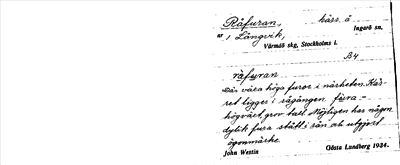 Råfuran, häst. å
nr 1 Långvik, Ingarö sn,
Värmdö skg, Stockholms l.
B4
råfuran
Där växa höga furor i närheten. Käs-
ret ligger i rågången. fura. =
högväxt, grov tall. Möjligen har någon
dylik fura stått i sån och utgjort
ögonmärke.
John Westin Gösta Lundberg 1934.